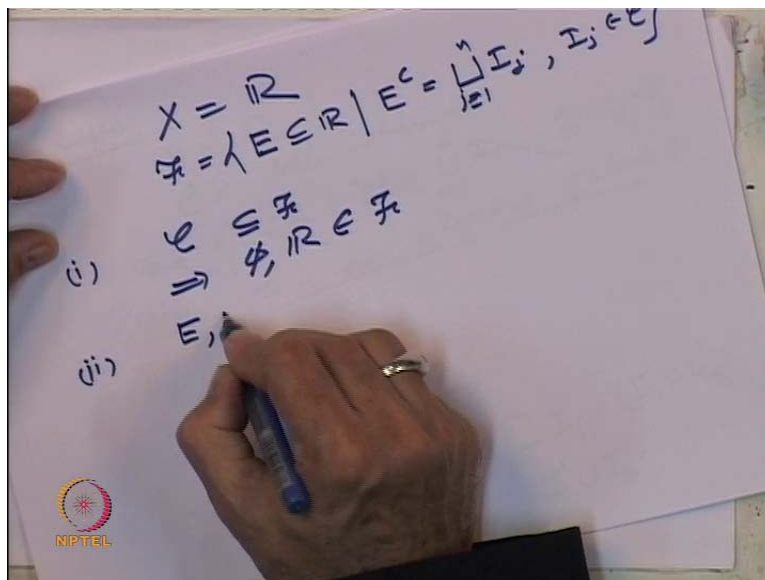 X = ℝ
𝓕 = { E ⊆ ℝ | E^c = ⊔_{j=1}^{n} I_j , I_j ∈ 𝒞 }
(i) 𝒞 ⊆ 𝓕
⇒ ϕ, ℝ ∈ 𝓕
(ii) E,
NPTEL